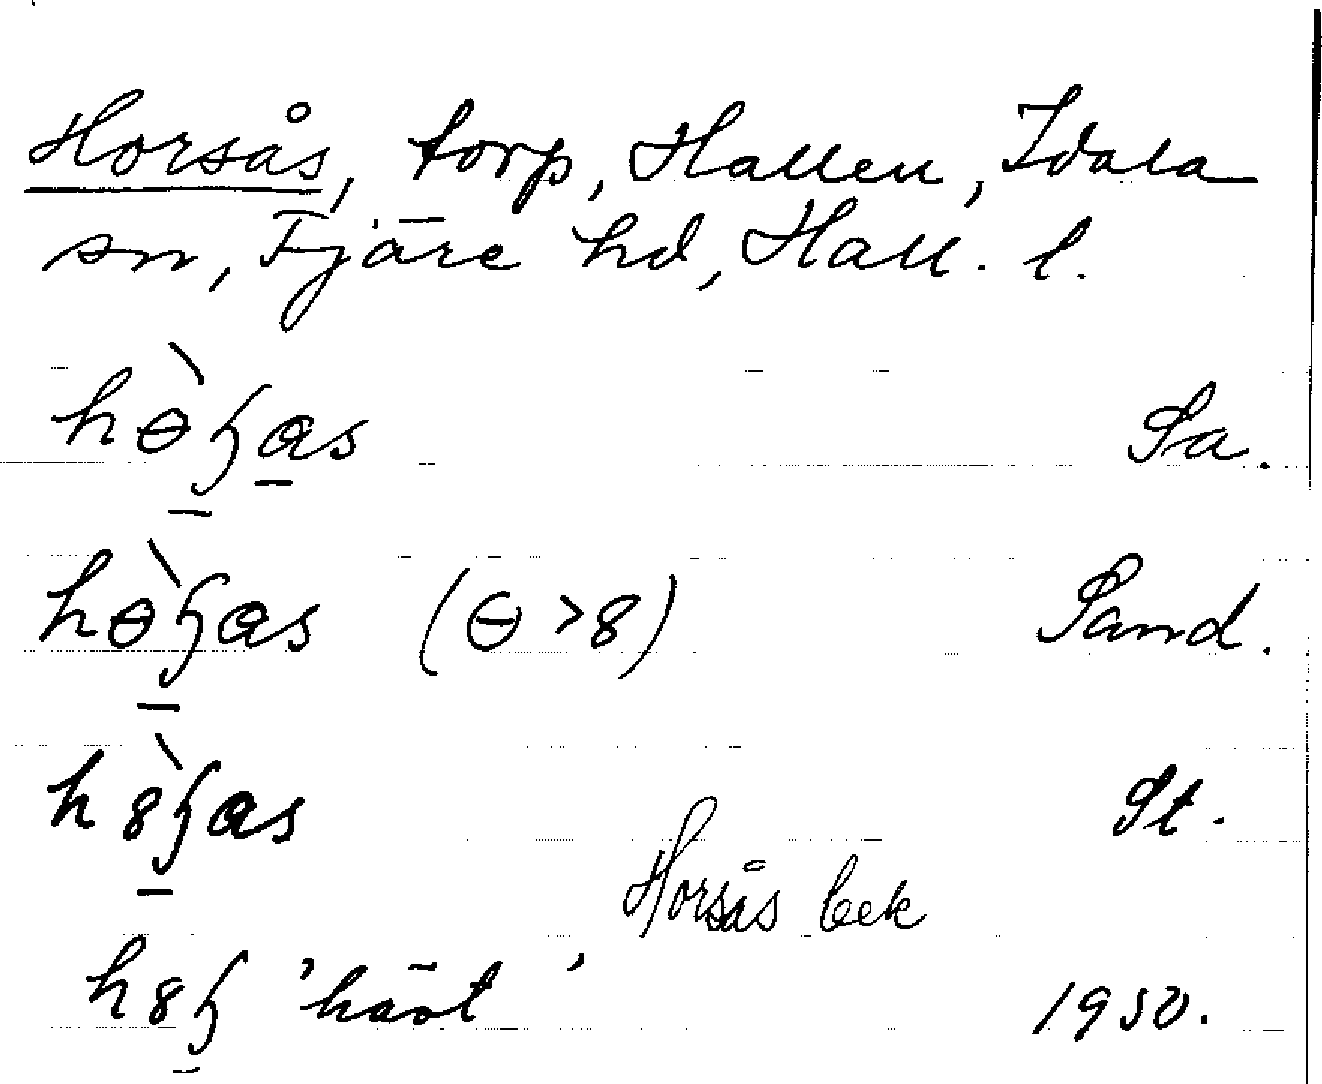 Horsås, torp, Hallen, Idala
sn, Fjäre hd, Hall. l.
Sa.
(ɵ > 8) Sand.
St.
Horsås bek
'häst' 1950.